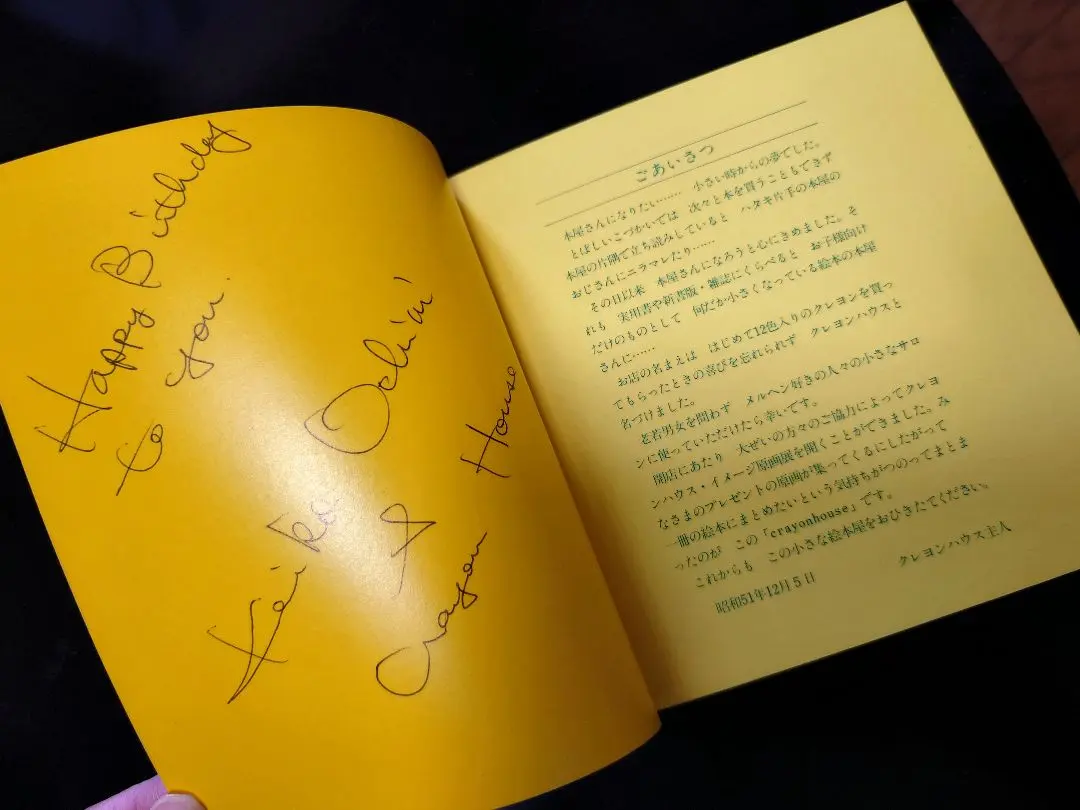 Happy Birthday
to you.
Keiko Ochiai
&
Crayon House
ごあいさつ
本屋さんになりたい…… 小さい時からの夢でした。
とぼしいこづかいでは 次々と本を買うこともできず
本屋の片隅で立ち読みしていると ハタキ片手の本屋の
おじさんにニラマレたり……
その日以来 本屋さんになろうと心にきめました。そ
れも 実用書や新書版・雑誌にくらべると お子様向け
だけのものとして 何だか小さくなっている絵本の本屋
さんに……
お店の名まえは はじめて12色入りのクレヨンを買っ
てもらったときの喜びを忘れられず クレヨンハウスと
名づけました。
老若男女を問わず メルヘン好きの人々の小さなサロ
ンに使っていただけたら幸いです。
開店にあたり 大ぜいの方々のご協力によってクレヨ
ンハウス・イメージ原画展を開くことができました。み
なさまのプレゼントの原画が集ってくるにしたがって
一冊の絵本にまとめたいという気持ちがつのってまとま
ったのが この「crayonhouse」です。
これからも この小さな絵本屋をおひきたてください。
クレヨンハウス主人
昭和51年12月5日